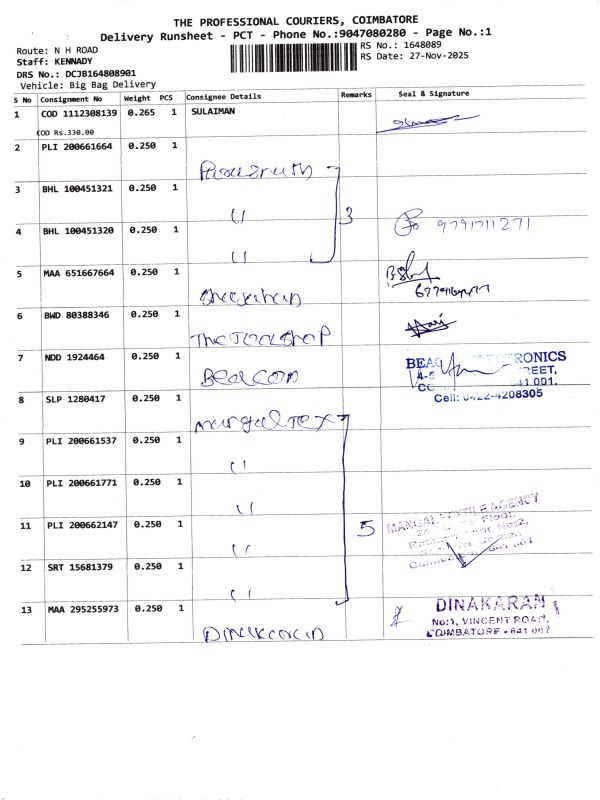 THE PROFESSIONAL COURIERS, COIMBATORE
Delivery Runsheet - PCT - Phone No.:9047080280 - Page No.:1
Route: N H ROAD
Staff: KENNADY
DRS No.: DCJB164808901
Vehicle: Big Bag Delivery
RS No.: 1648089
RS Date: 27-Nov-2025
S No Consignment No Weight PCS Consignee Details Remarks Seal & Signature
1 COD 1112308139 0.265 1 SULAIMAN
COD Rs.330.00
2 PLI 200661664 0.250 1
3 BHL 100451321 0.250 1 " 3
4 BHL 100451320 0.250 1 " 9791711271
5 MAA 651667664 0.250 1
6 BWD 80388346 0.250 1 The Toolshop
7 NDD 1924464 0.250 1 Beacon
BEAC ELECTRONICS
REET,
641 001.
Cell: 0422-4208305
8 SLP 1280417 0.250 1 Mangal Tex
9 PLI 200661537 0.250 1 "
10 PLI 200661771 0.250 1 "
11 PLI 200662147 0.250 1 " 5
MANGAL TEXTILE AGENCY
12 SRT 15681379 0.250 1 "
13 MAA 295255973 0.250 1 Dinakaran
DINAKARAN
No:1, VINCENT ROAD,
COIMBATORE - 641 001